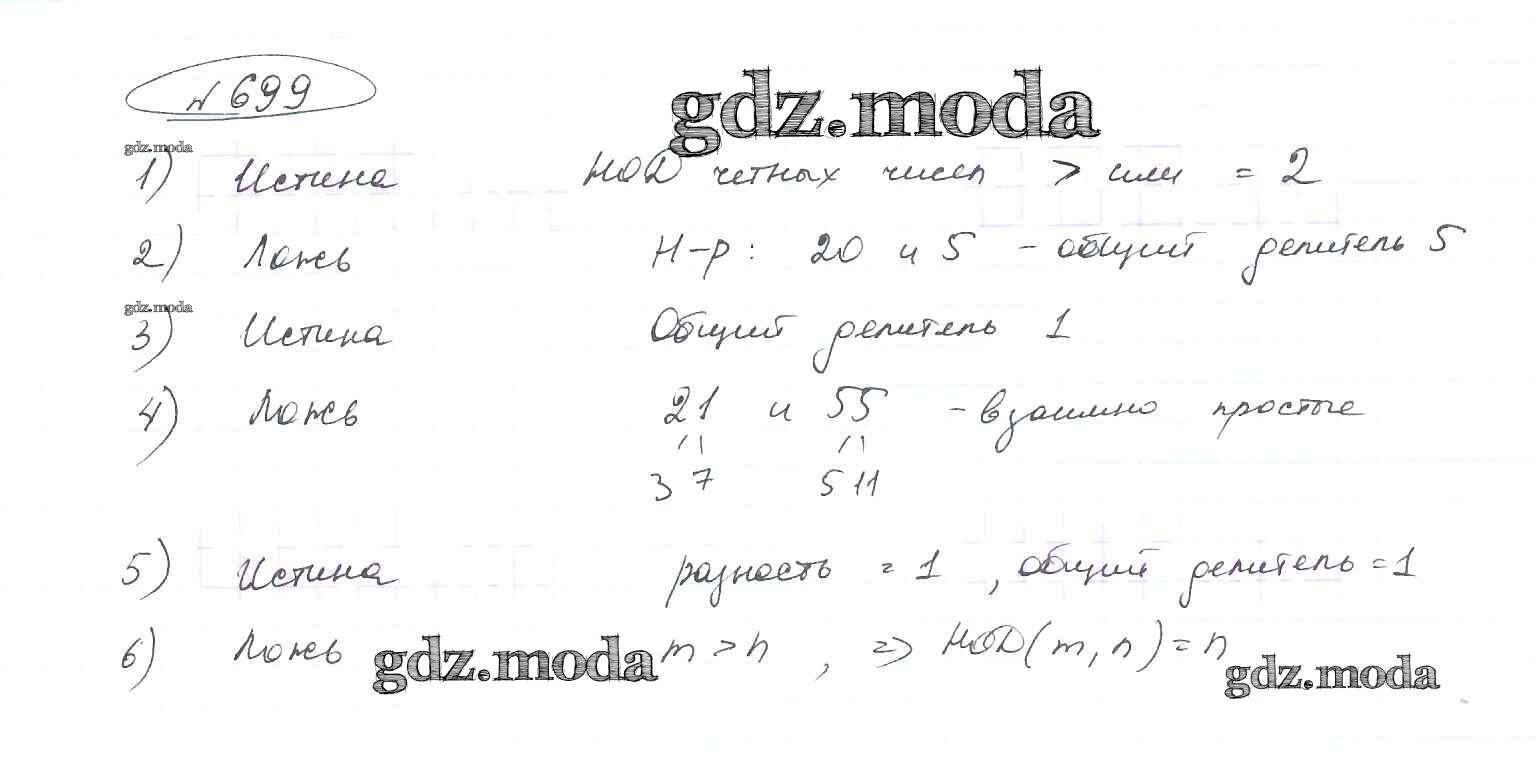 № 699
gdz.moda
gdz.moda
1) Истина НОД четных чисел > или = 2
2) Ложь Н-р: 20 и 5 - общий делитель 5
gdz.moda
3) Истина Общий делитель 1
4) Ложь 21 и 55 - взаимно простые
3 7 5 11
5) Истина разность = 1, общий делитель = 1
6) Ложь gdz.moda m > n, => НОД(m, n) = n
gdz.moda